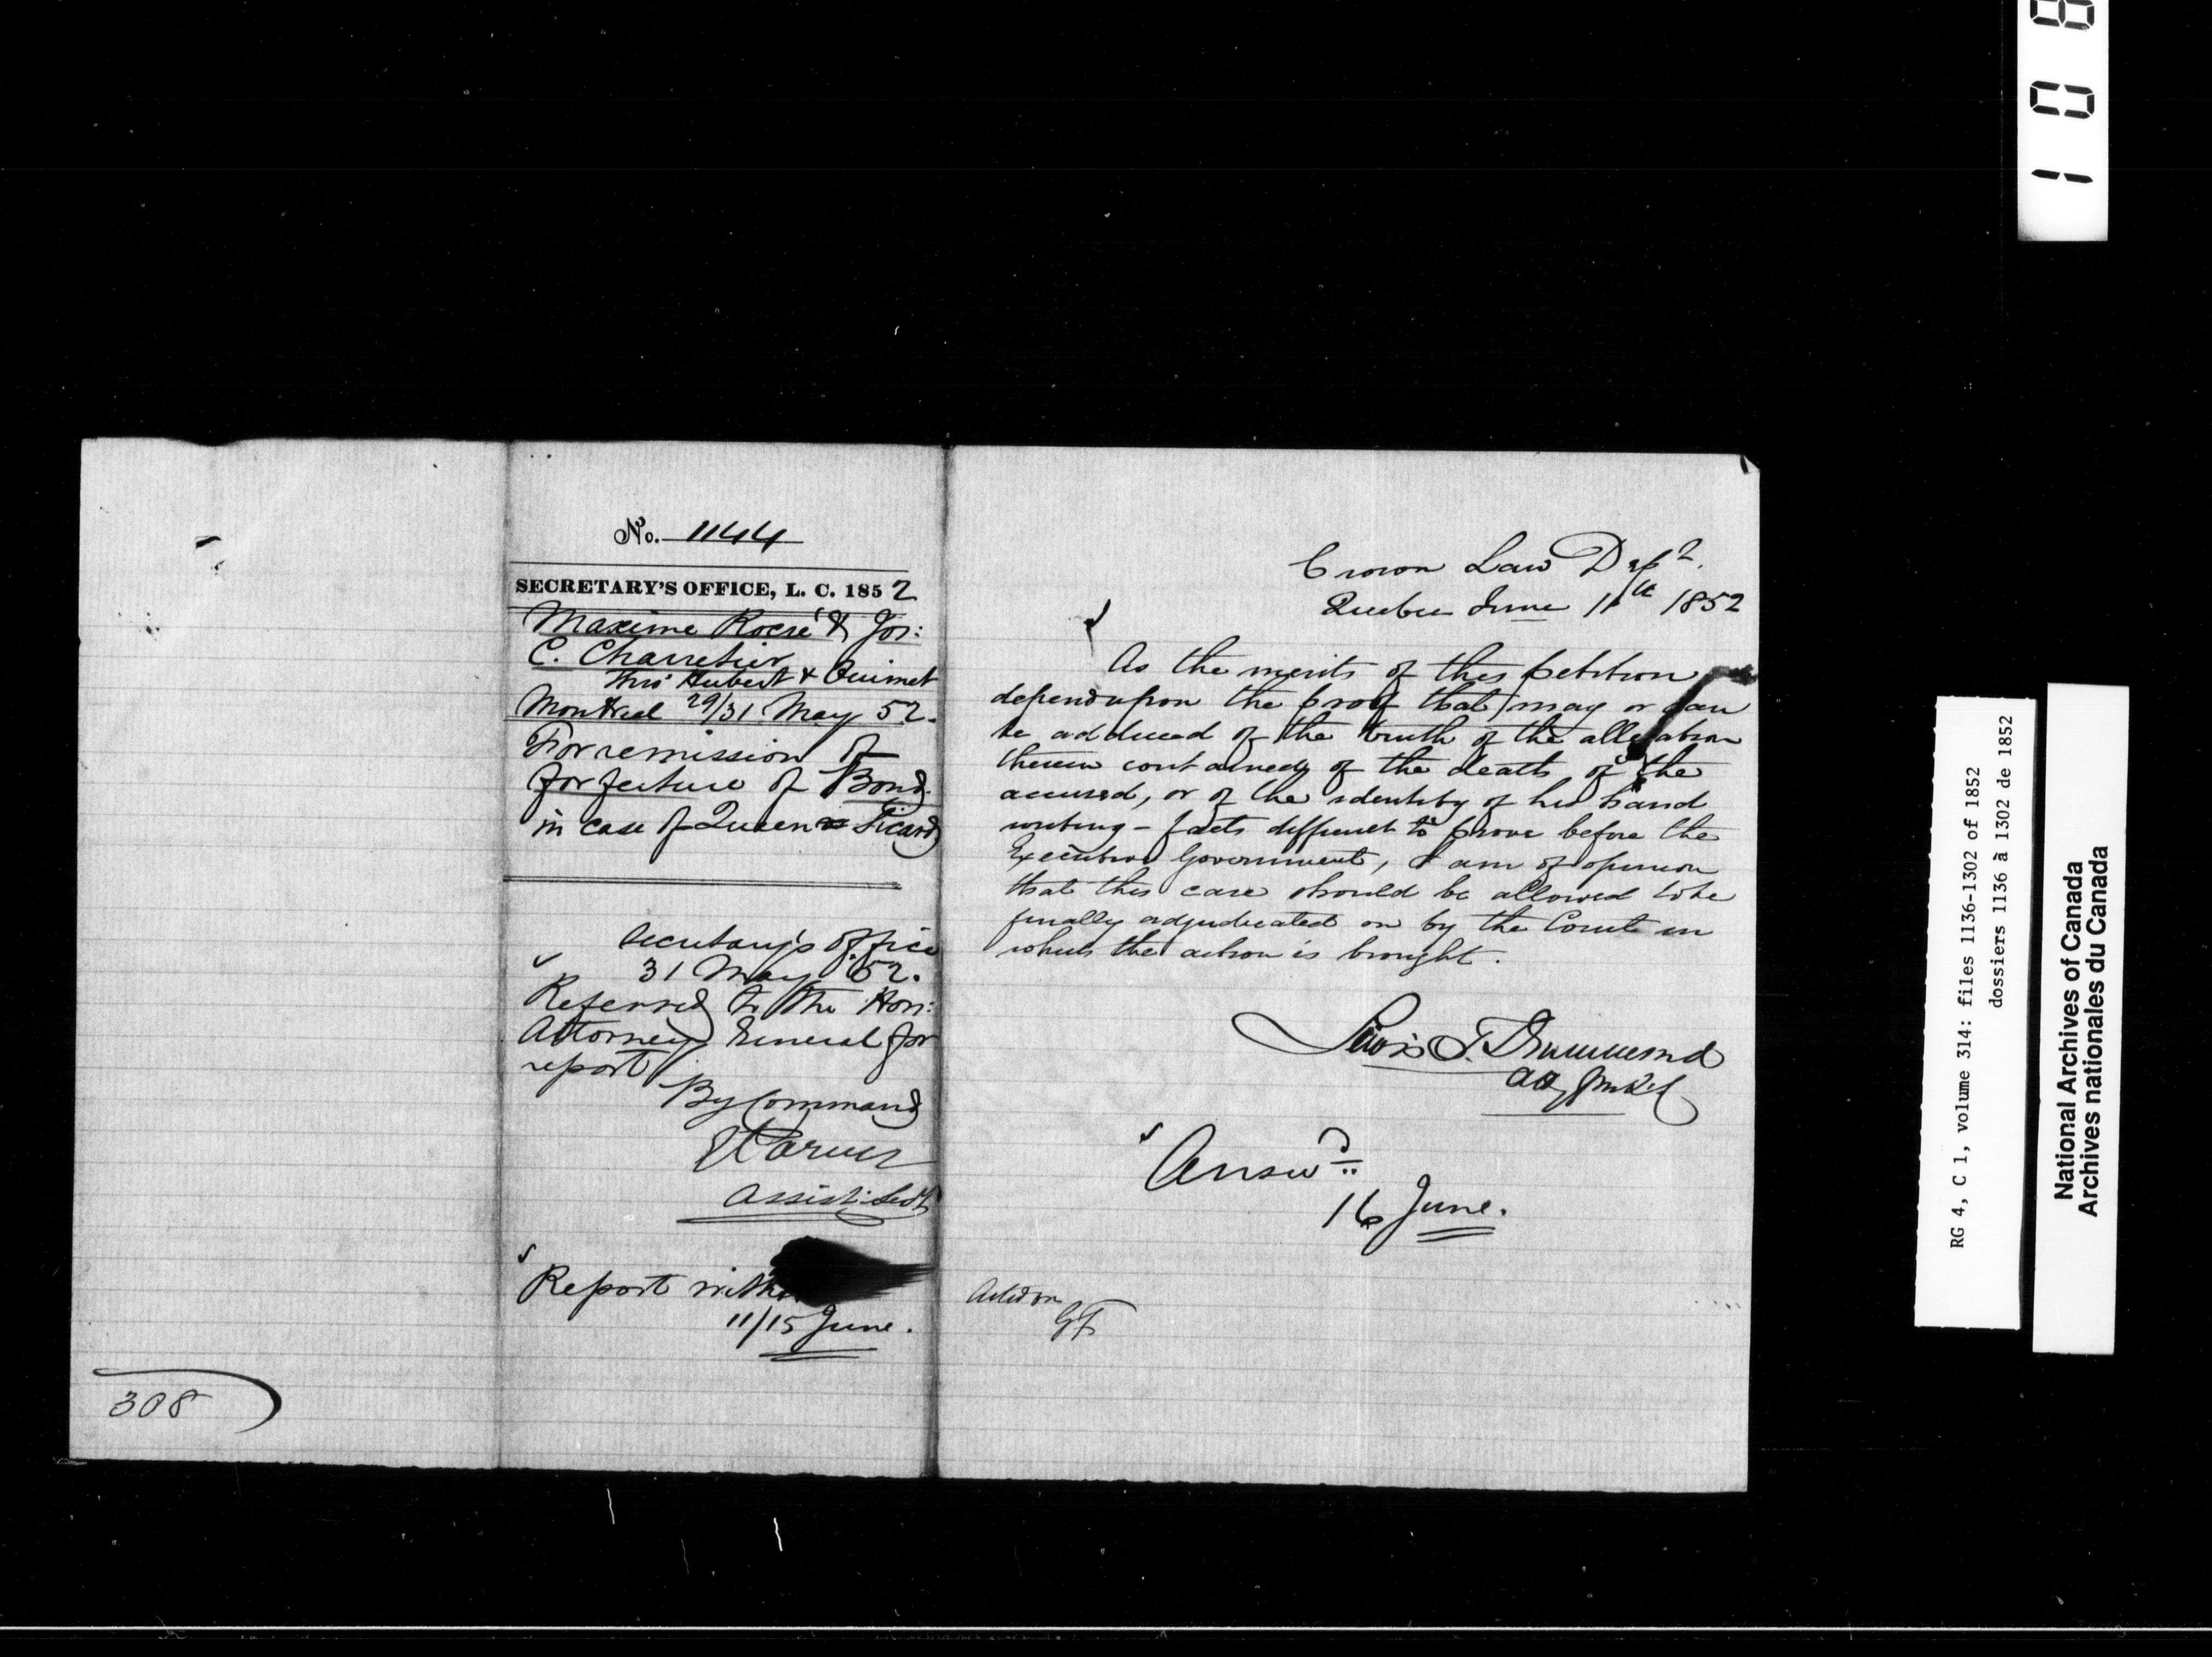 No. 1144
SECRETARY'S OFFICE, L. C. 1852
Maxime Rocsé & Jos:
C. Charretier
thro' Hubert & Ouimet
Montreal 29/31 May 52.
For remission of
forfeiture of Bond
in case of Queen vs Picard
Secretary's Office
31 May '52.
Referred to the Hon:
Attorney General for
report
By Command
Assist: Secy
Report within
11/15 June.
308
Crown Law Dept.
Quebec June 11th 1852
As the merits of this petition
depend upon the proof that may or can
be adduced of the truth of the allegation
therein contained of the death of the
accused, or of the identity of his hand
writing - facts difficult to prove before the
Executive Government, I am of opinion
that this case should be allowed to be
finally adjudicated on by the Court in
which the action is brought.
Lewis T. Drummond
Atty Genl
Answd
16 June.
Acted on
GF
108
RG 4, C 1, volume 314: files 1136-1302 of 1852
dossiers 1136 à 1302 de 1852
National Archives of Canada
Archives nationales du Canada